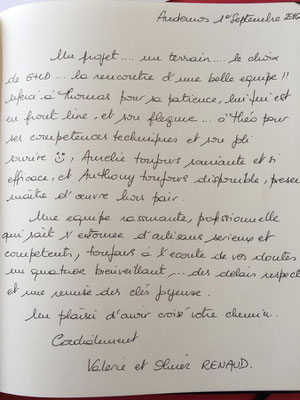 Andernos 1er Septembre 2016
Un projet.... un terrain.... le choix
de GHD... la rencontre d'une belle equipe!!
Merci à Thomas pour sa patience, lui qui est
en front line, et son flegme... à Théo pour
ses competences techniques et son joli
sourire ☺, Aurelie toujours souriante et si
efficace, et Anthony toujours disponible, present
maître d'œuvre hors pair.
Une equipe rassurante, professionnelle
qui sait s'entourer d'artisans serieux et
competents, toujours à l'ecoute de vos doutes
un quatuor bienveillant,... des delais respect
et une remise des clés joyeuse.
Un plaisir d'avoir croisé votre chemin.
Cordialement
Valerie et Olivier RENAUD.